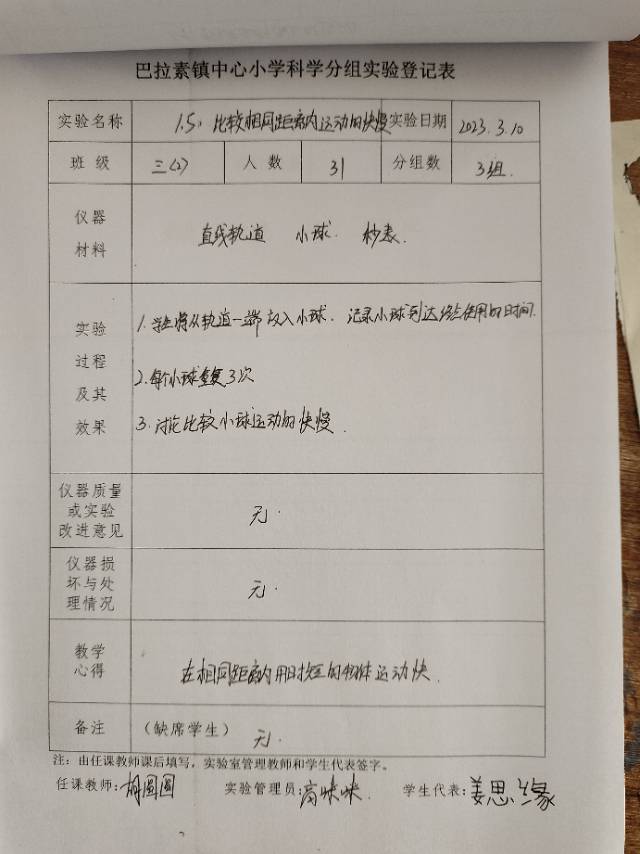 巴拉素镇中心小学科学分组实验登记表
实验名称 1.5：比较相同距离内运动的快慢 实验日期 2023.3.10
班级 三(2) 人数 31 分组数 3组.
仪器
材料
直线轨道 小球. 秒表.
实验
过程
及其
效果
1.学生将从轨道一端放入小球. 记录小球到达终点使用的时间.
2.每个小球重复3次
3.讨论比较小球运动的快慢.
仪器质量
或实验
改进意见
无.
仪器损
坏与处
理情况
无.
教学
心得
在相同距离内用时短的物体运动快.
备注 （缺席学生） 无.
注：由任课教师课后填写，实验室管理教师和学生代表签字。
任课教师：胡圆圆 实验管理员：高 学生代表：姜思缘